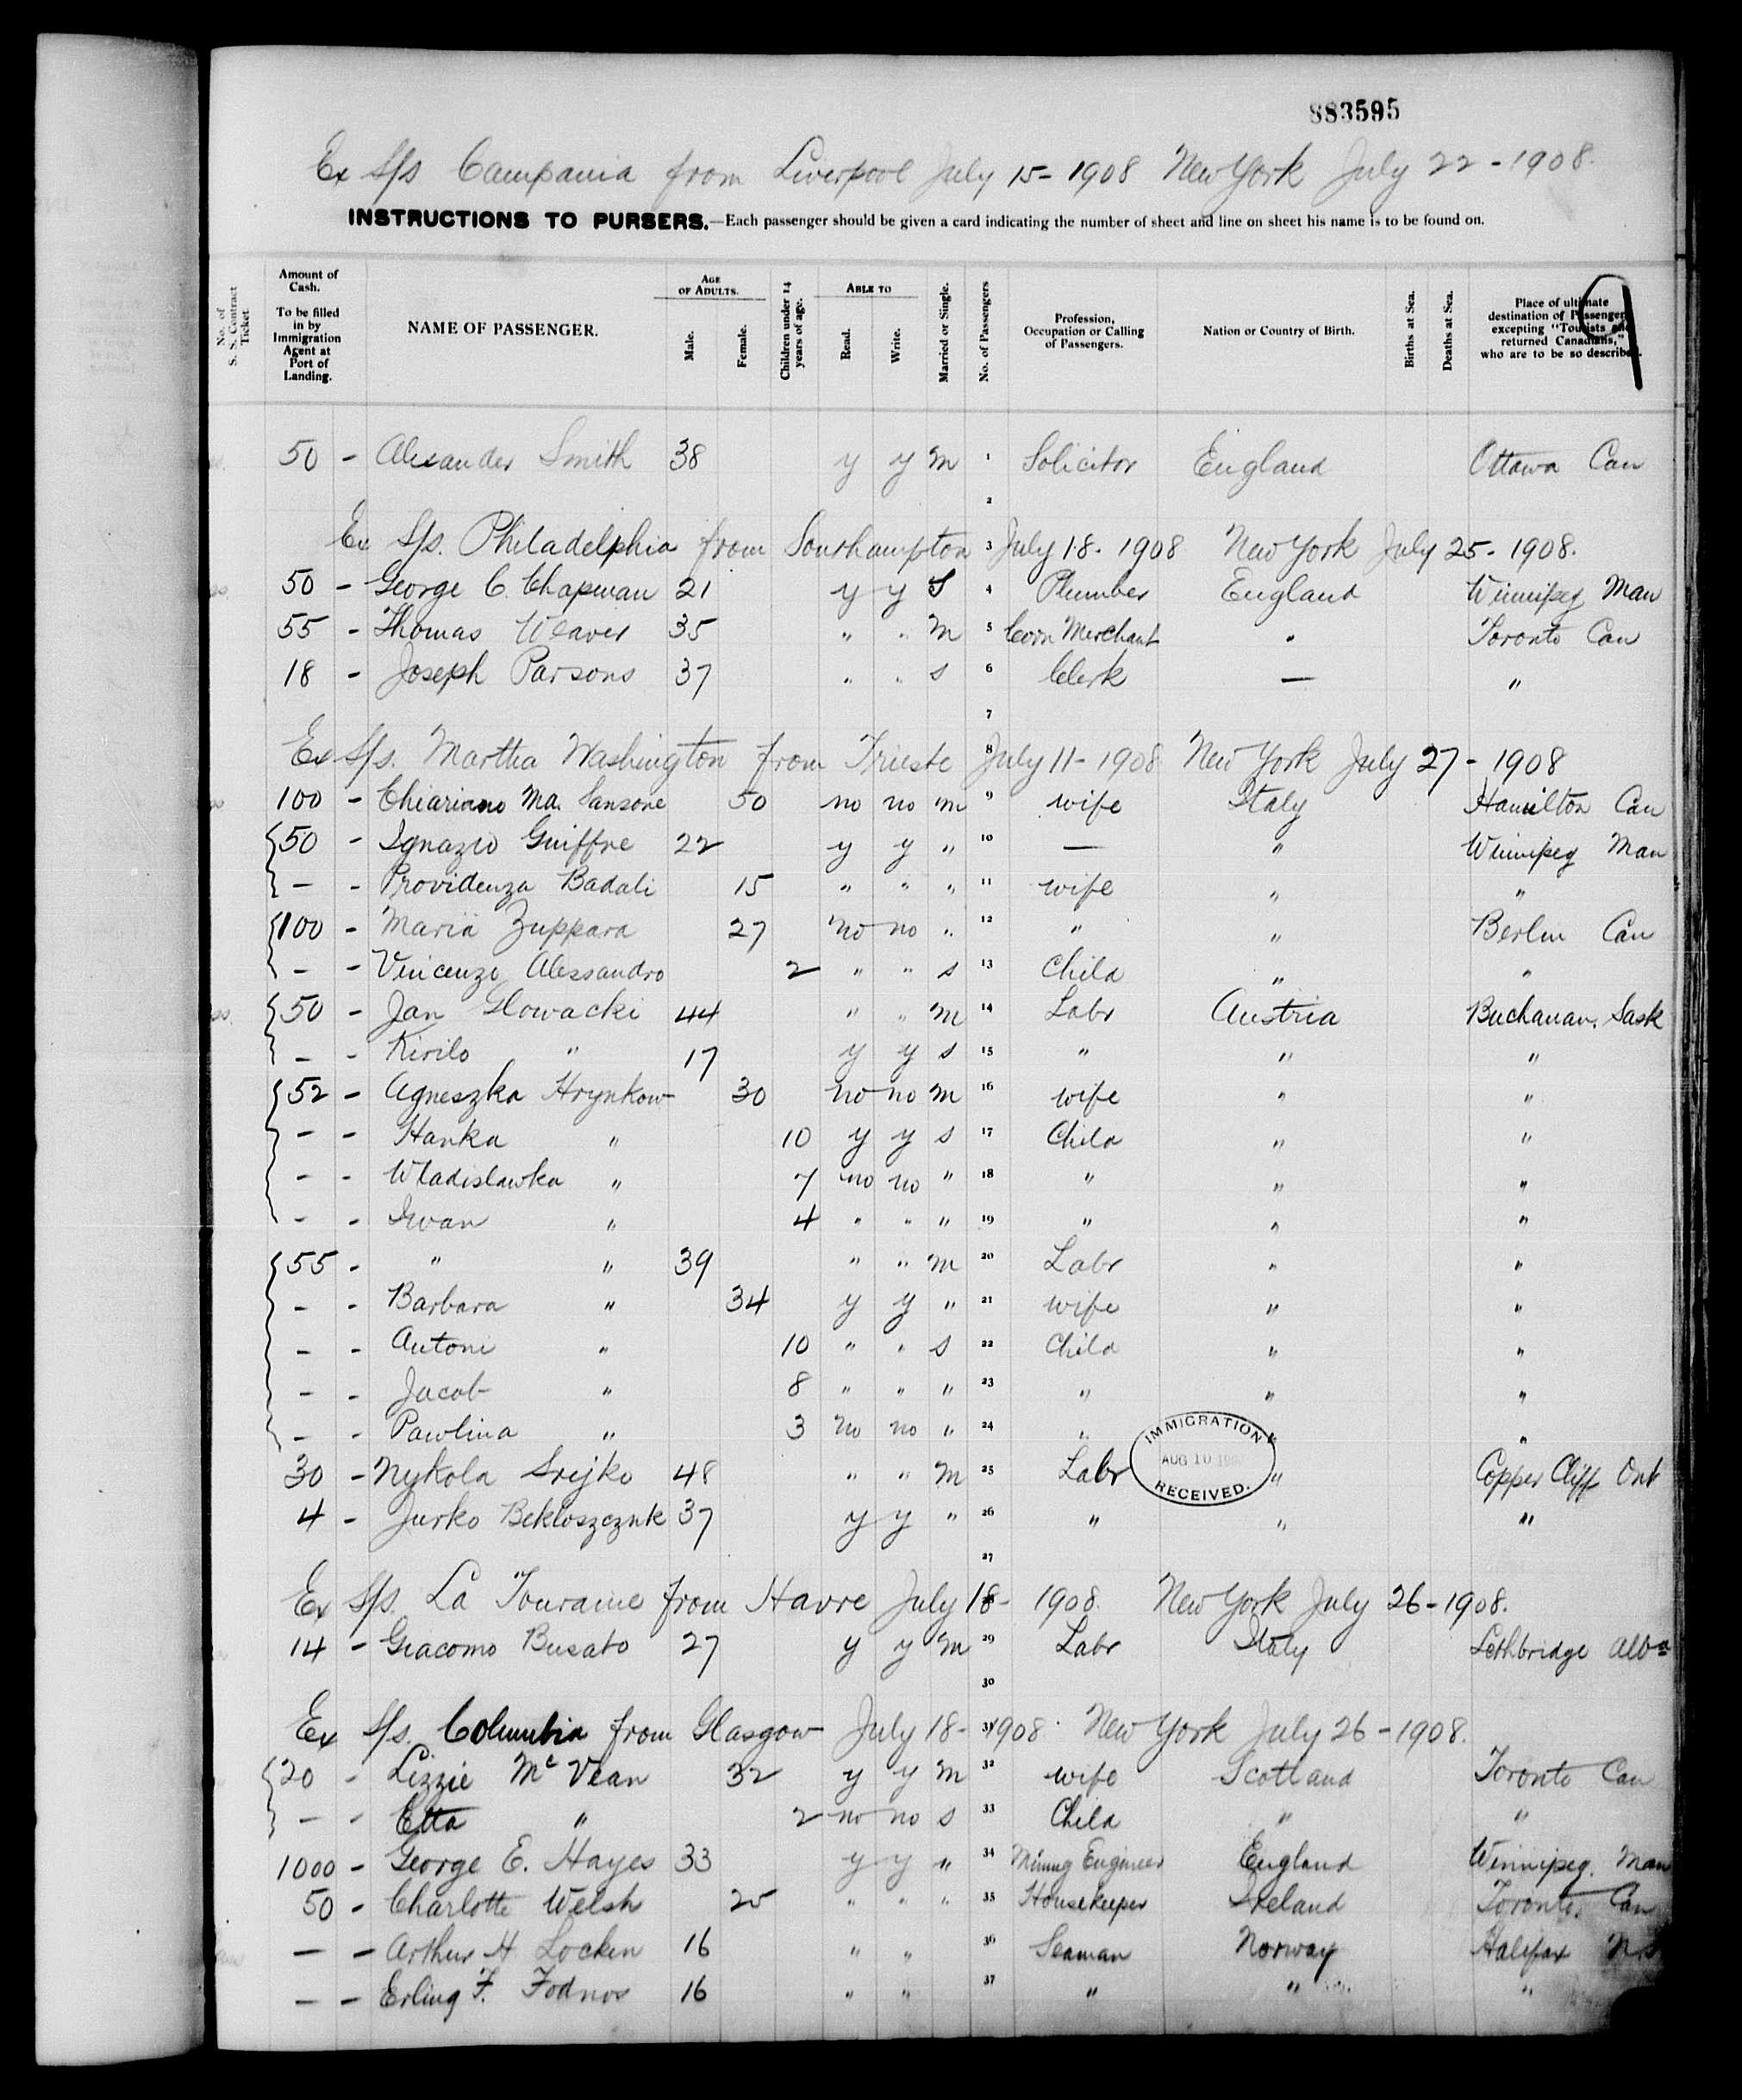 883595
Ex S/s Campania from Liverpool July 15 - 1908 New York July 22 - 1908.
INSTRUCTIONS TO PURSERS.—Each passenger should be given a card indicating the number of sheet and line on sheet his name is to be found on.
No. of S. S. Contract Ticket
Amount of Cash. To be filled in by Immigration Agent at Port of Landing.
NAME OF PASSENGER.
AGE OF ADULTS. Male. Female.
Children under 14 years of age.
ABLE TO Read. Write.
Married or Single.
No. of Passengers
Profession, Occupation or Calling of Passengers.
Nation or Country of Birth.
Births at Sea.
Deaths at Sea.
Place of ultimate destination of Passengers excepting "Tourists and returned Canadians," who are to be so described.
9
50 - Alexander Smith 38 y y m 1 Solicitor England Ottawa Can
2
Ex S/s. Philadelphia from Southampton 3 July 18 - 1908 New York July 25 - 1908.
50 - George C. Chapman 21 y y S 4 Plumber England Winnipeg Man
55 - Thomas Weaver 35 " " m 5 Corn Merchant " Toronto Can
18 - Joseph Parsons 37 " " s 6 Clerk — "
7
Ex S/s. Martha Washington from Trieste 8 July 11 - 1908 New York July 27 - 1908
100 - Chiariano Ma. Sansone 50 no no m 9 wife Italy Hamilton Can
50 - Ignazio Guiffre 22 y y " 10 — " Winnipeg Man
- - Providenza Badali 15 " " " 11 wife " "
100 - Maria Zuppara 27 no no " 12 " " Berlin Can
- - Vincenzo Alessandro 2 " " s 13 Child " "
50 - Jan Glowacki 44 " " m 14 Labr Austria Buchanan, Sask
- - Kirilo " 17 y y s 15 " " "
52 - Agneszka Hrynkow 30 no no m 16 wife " "
- - Hanka " 10 y y s 17 Child " "
- - Wladislawka " 7 no no " 18 " " "
- - Iwan " 4 " " " 19 " " "
55 - " " 39 " " m 20 Labr " "
- - Barbara " 34 y y " 21 wife " "
- - Antoni " 10 " " s 22 Child " "
- - Jacob " 8 " " " 23 " " "
- - Pawlina " 3 no no " 24 " " "
30 - Nykola Srejko 48 " " m 25 Labr " Copper Cliff Ont
IMMIGRATION AUG 10 RECEIVED.
4 - Jurko 37 y y " 26 " " "
27
Ex S/s. La Touraine from Havre July 18 - 1908. New York July 26 - 1908.
14 - Giacomo Busato 27 y y m 29 Labr Italy Lethbridge Alba
30
Ex S/s. Columbia from Glasgow July 18 - 31 1908. New York July 26 - 1908.
20 - Lizzie McVean 32 y y m 32 wife Scotland Toronto Can
- - Etta " 2 no no s 33 Child " "
1000 - George E. Hayes 33 y y " 34 Mining Engineer England Winnipeg. Man
50 - Charlotte Welsh 25 " " " 35 Housekeeper Ireland Toronto. Can
— - Arthur H. Locken 16 " " 36 Seaman Norway Halifax N.S
— - Erling F. Fodnos 16 " " 37 " " "